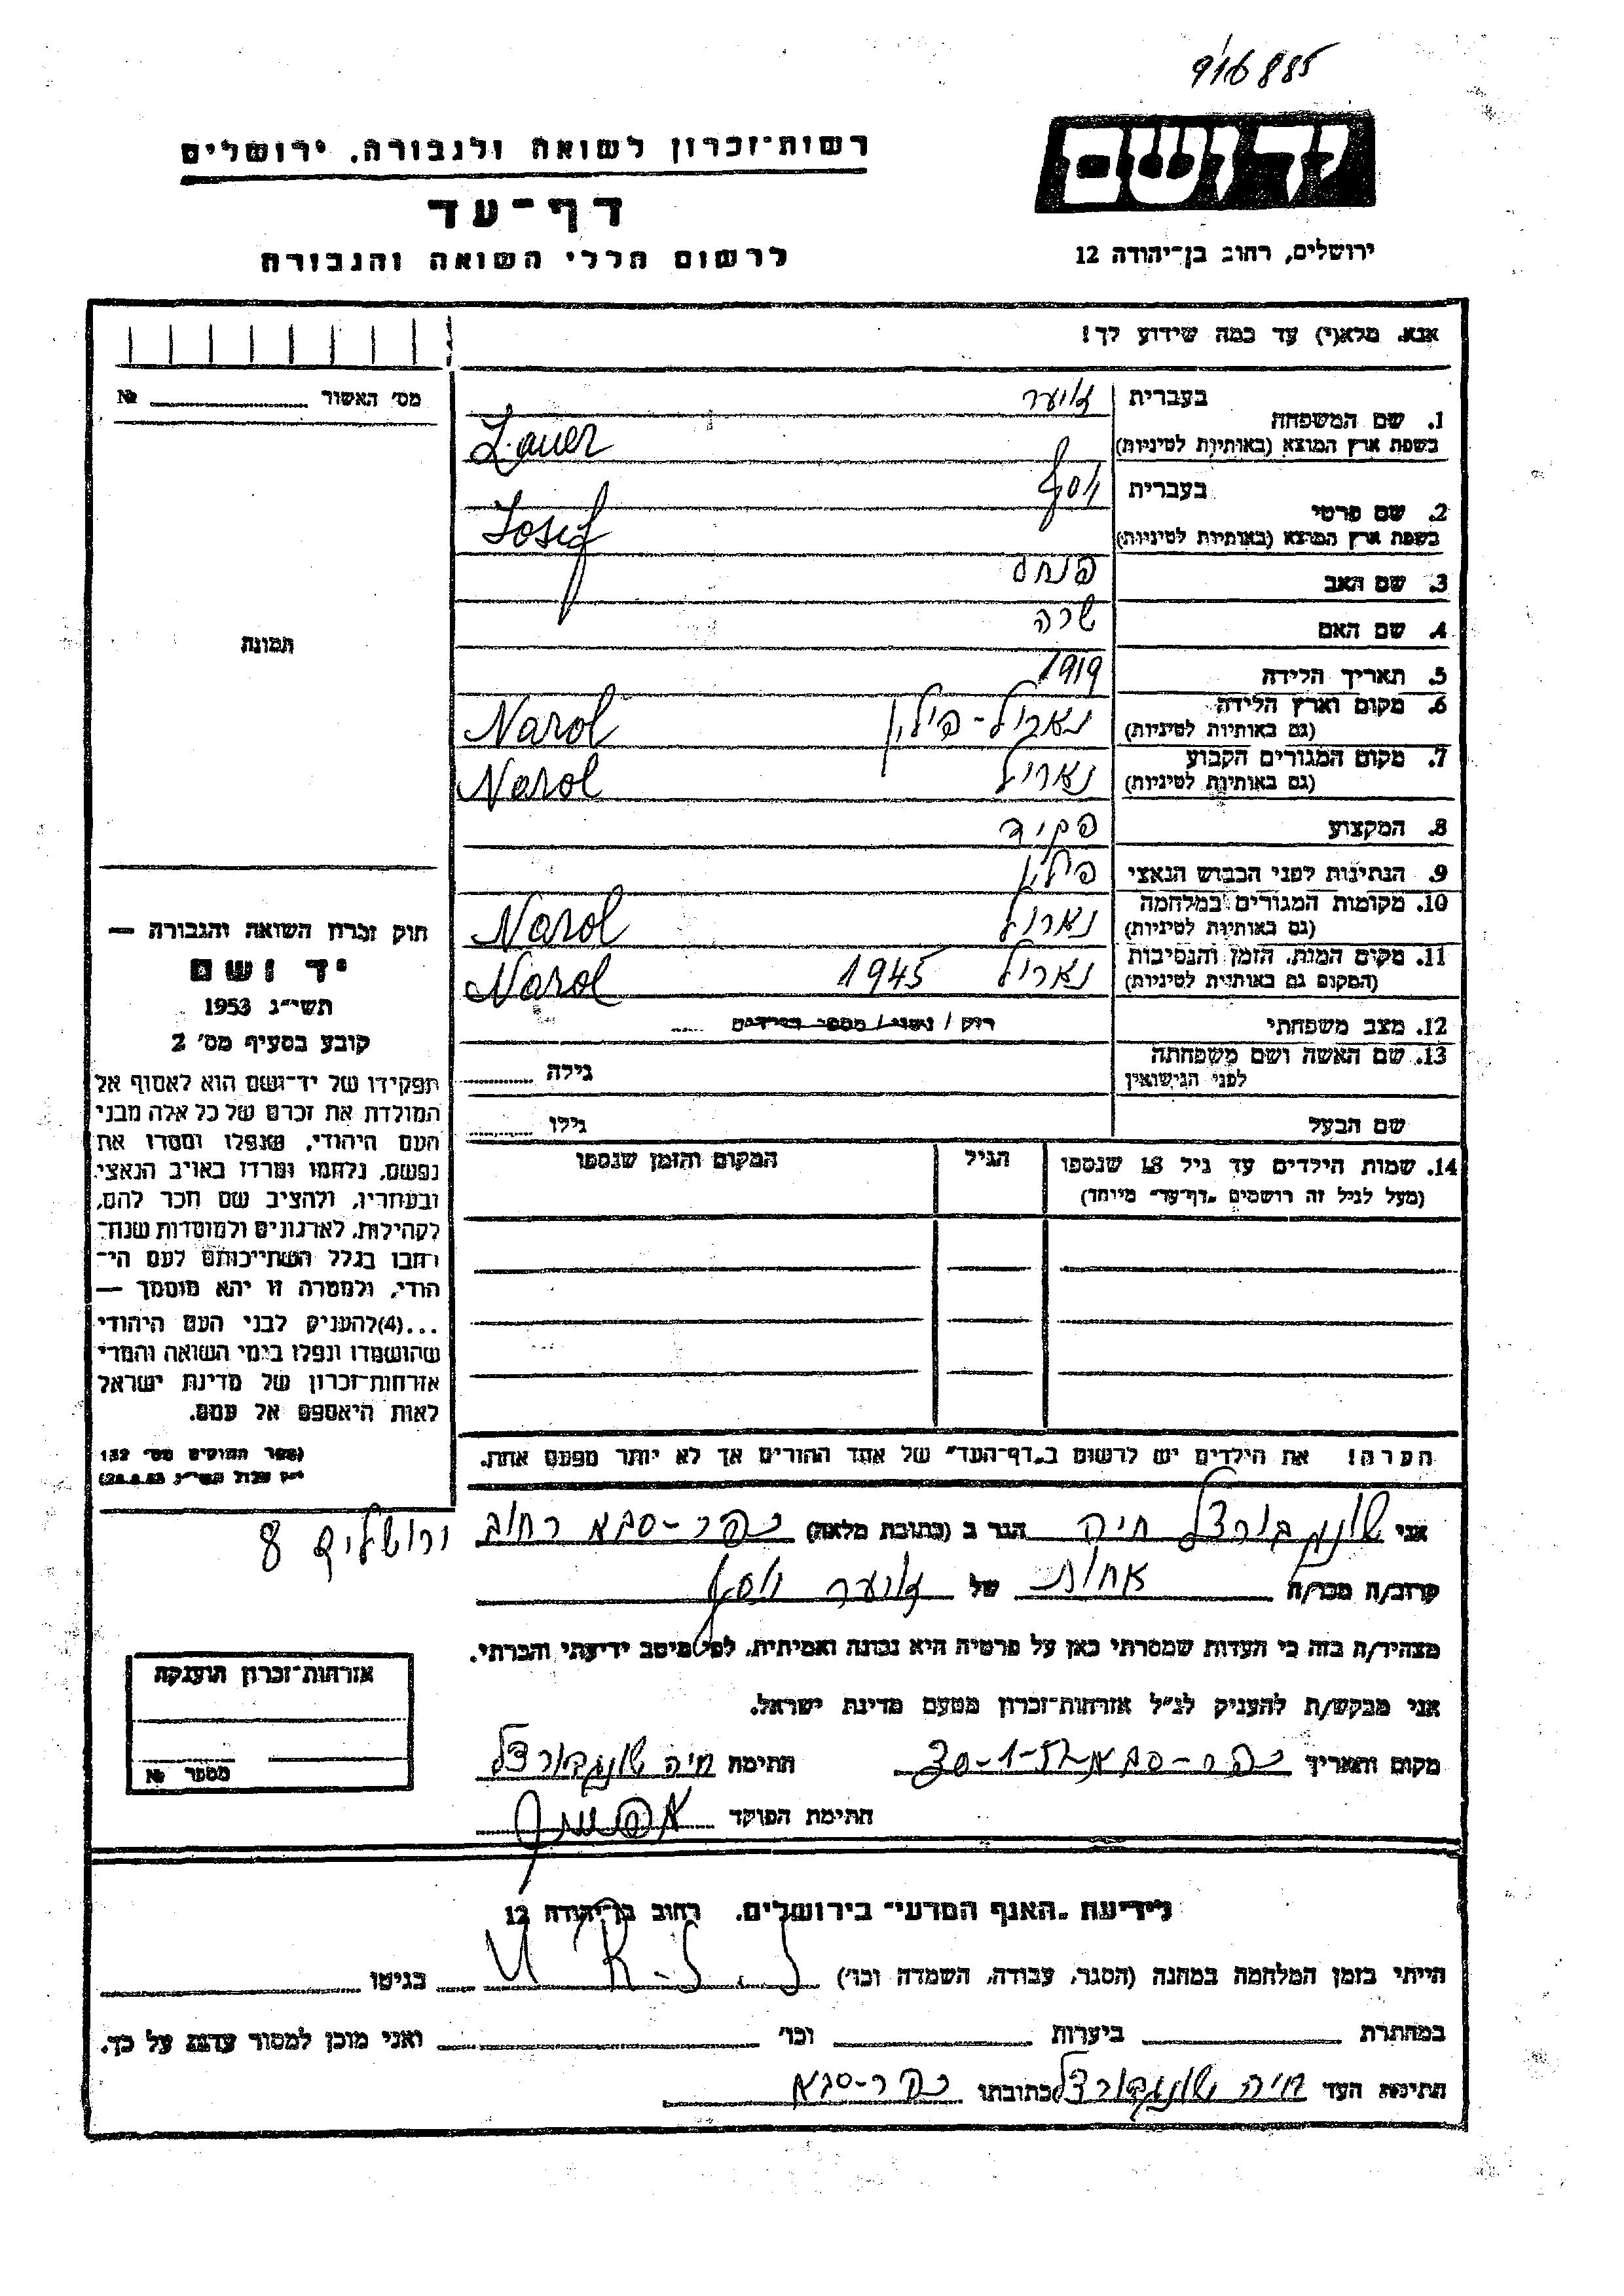 916885
רשות־זכרון לשואה ולגבורה, ירושלים
יד ושם
דף־עד
לרשום חללי השואה והגבורה
ירושלים, רחוב בן־יהודה 12
אנא, מלא(י) עד כמה שידוע לך!
מס׳ האשור № 
בעברית
1. שם המשפחה
בשפת ארץ המוצא (באותיות לטיניות)
Lauer
בעברית יוסף
2. שם פרטי
בשפת ארץ המוצא (באותיות לטיניות)
Josif
3. שם האב פנחס
4. שם האם שרה
תמונת
5. תאריך הלידה 1919
6. מקום וארץ הלידה נארול-פולין Narol
(גם באותיות לטיניות)
7. מקום המגורים הקבוע נארול Narol
(גם באותיות לטיניות)
8. המקצוע פקיד
9. הנתינות לפני הכבוש הנאצי פולין
10. מקומות המגורים במלחמה נארול Narol
(גם באותיות לטיניות)
11. מקום המות, הזמן והנסיבות נארול 1945 Narol
(המקום גם באותיות לטיניות)
12. מצב משפחתי רוק / נשוי / מספר הילדים
13. שם האשה ושם משפחתה
לפני הנישואין גילה
שם הבעל גילו
14. שמות הילדים עד גיל 18 שנספו הגיל המקום והזמן שנספו
(מעל לגיל זה רושמים „דף־עד״ מיוחד)
חוק זכרון השואה והגבורה —
יד ושם
תשי״ג 1953
קובע בסעיף מס׳ 2
תפקידו של יד־ושם הוא לאסוף אל
המולדת את זכרם של כל אלה מבני
העם היהודי, שנפלו ומסרו את
נפשם, נלחמו ומרדו באויב הנאצי
ובעוזריו, ולהציב שם וזכר להם,
לקהילות, לארגונים ולמוסדות שנח־
רבו בגלל השתייכותם לעם הי־
הודי, ולמטרה זו יהא מוסמך —
...(4) להעניק לבני העם היהודי
שהושמדו ונפלו בימי השואה והמרי
אזרחות־זכרון של מדינת ישראל
לאות היאספם אל עמם.
(ספר החוקים מס׳ 132
הערה! את הילדים יש לרשום ב„דף־העד״ של אחד ההורים אך לא יותר מפעם אחת.
אני חיה הגר ב (כתובת מלאה) כפר-סבא רחוב ירושלים 8
קרוב/ה מכר/ה אחות של יוסף
מצהיר/ה בזה כי העדות שמסרתי כאן על פרטיה היא נכונה ואמיתית, לפי מיטב ידיעתי והכרתי.
אני מבקש/ת להעניק לנ״ל אזרחות־זכרון מטעם מדינת ישראל.
מקום ותאריך כפר-סבא חתימה חיה
חתימת הפוקד
אזרחות־זכרון הוענקה
מספר №
לידיעת „האגף המדעי״ בירושלים, רחוב בן־יהודה 12
הייתי בזמן המלחמה במחנה (הסגר, עבודה, השמדה וכו׳) בגיטו
במחתרת ביערות וכו׳ ואני מוכן למסור עדות על כך.
חתימת העד חיה כתובתו כפר-סבא